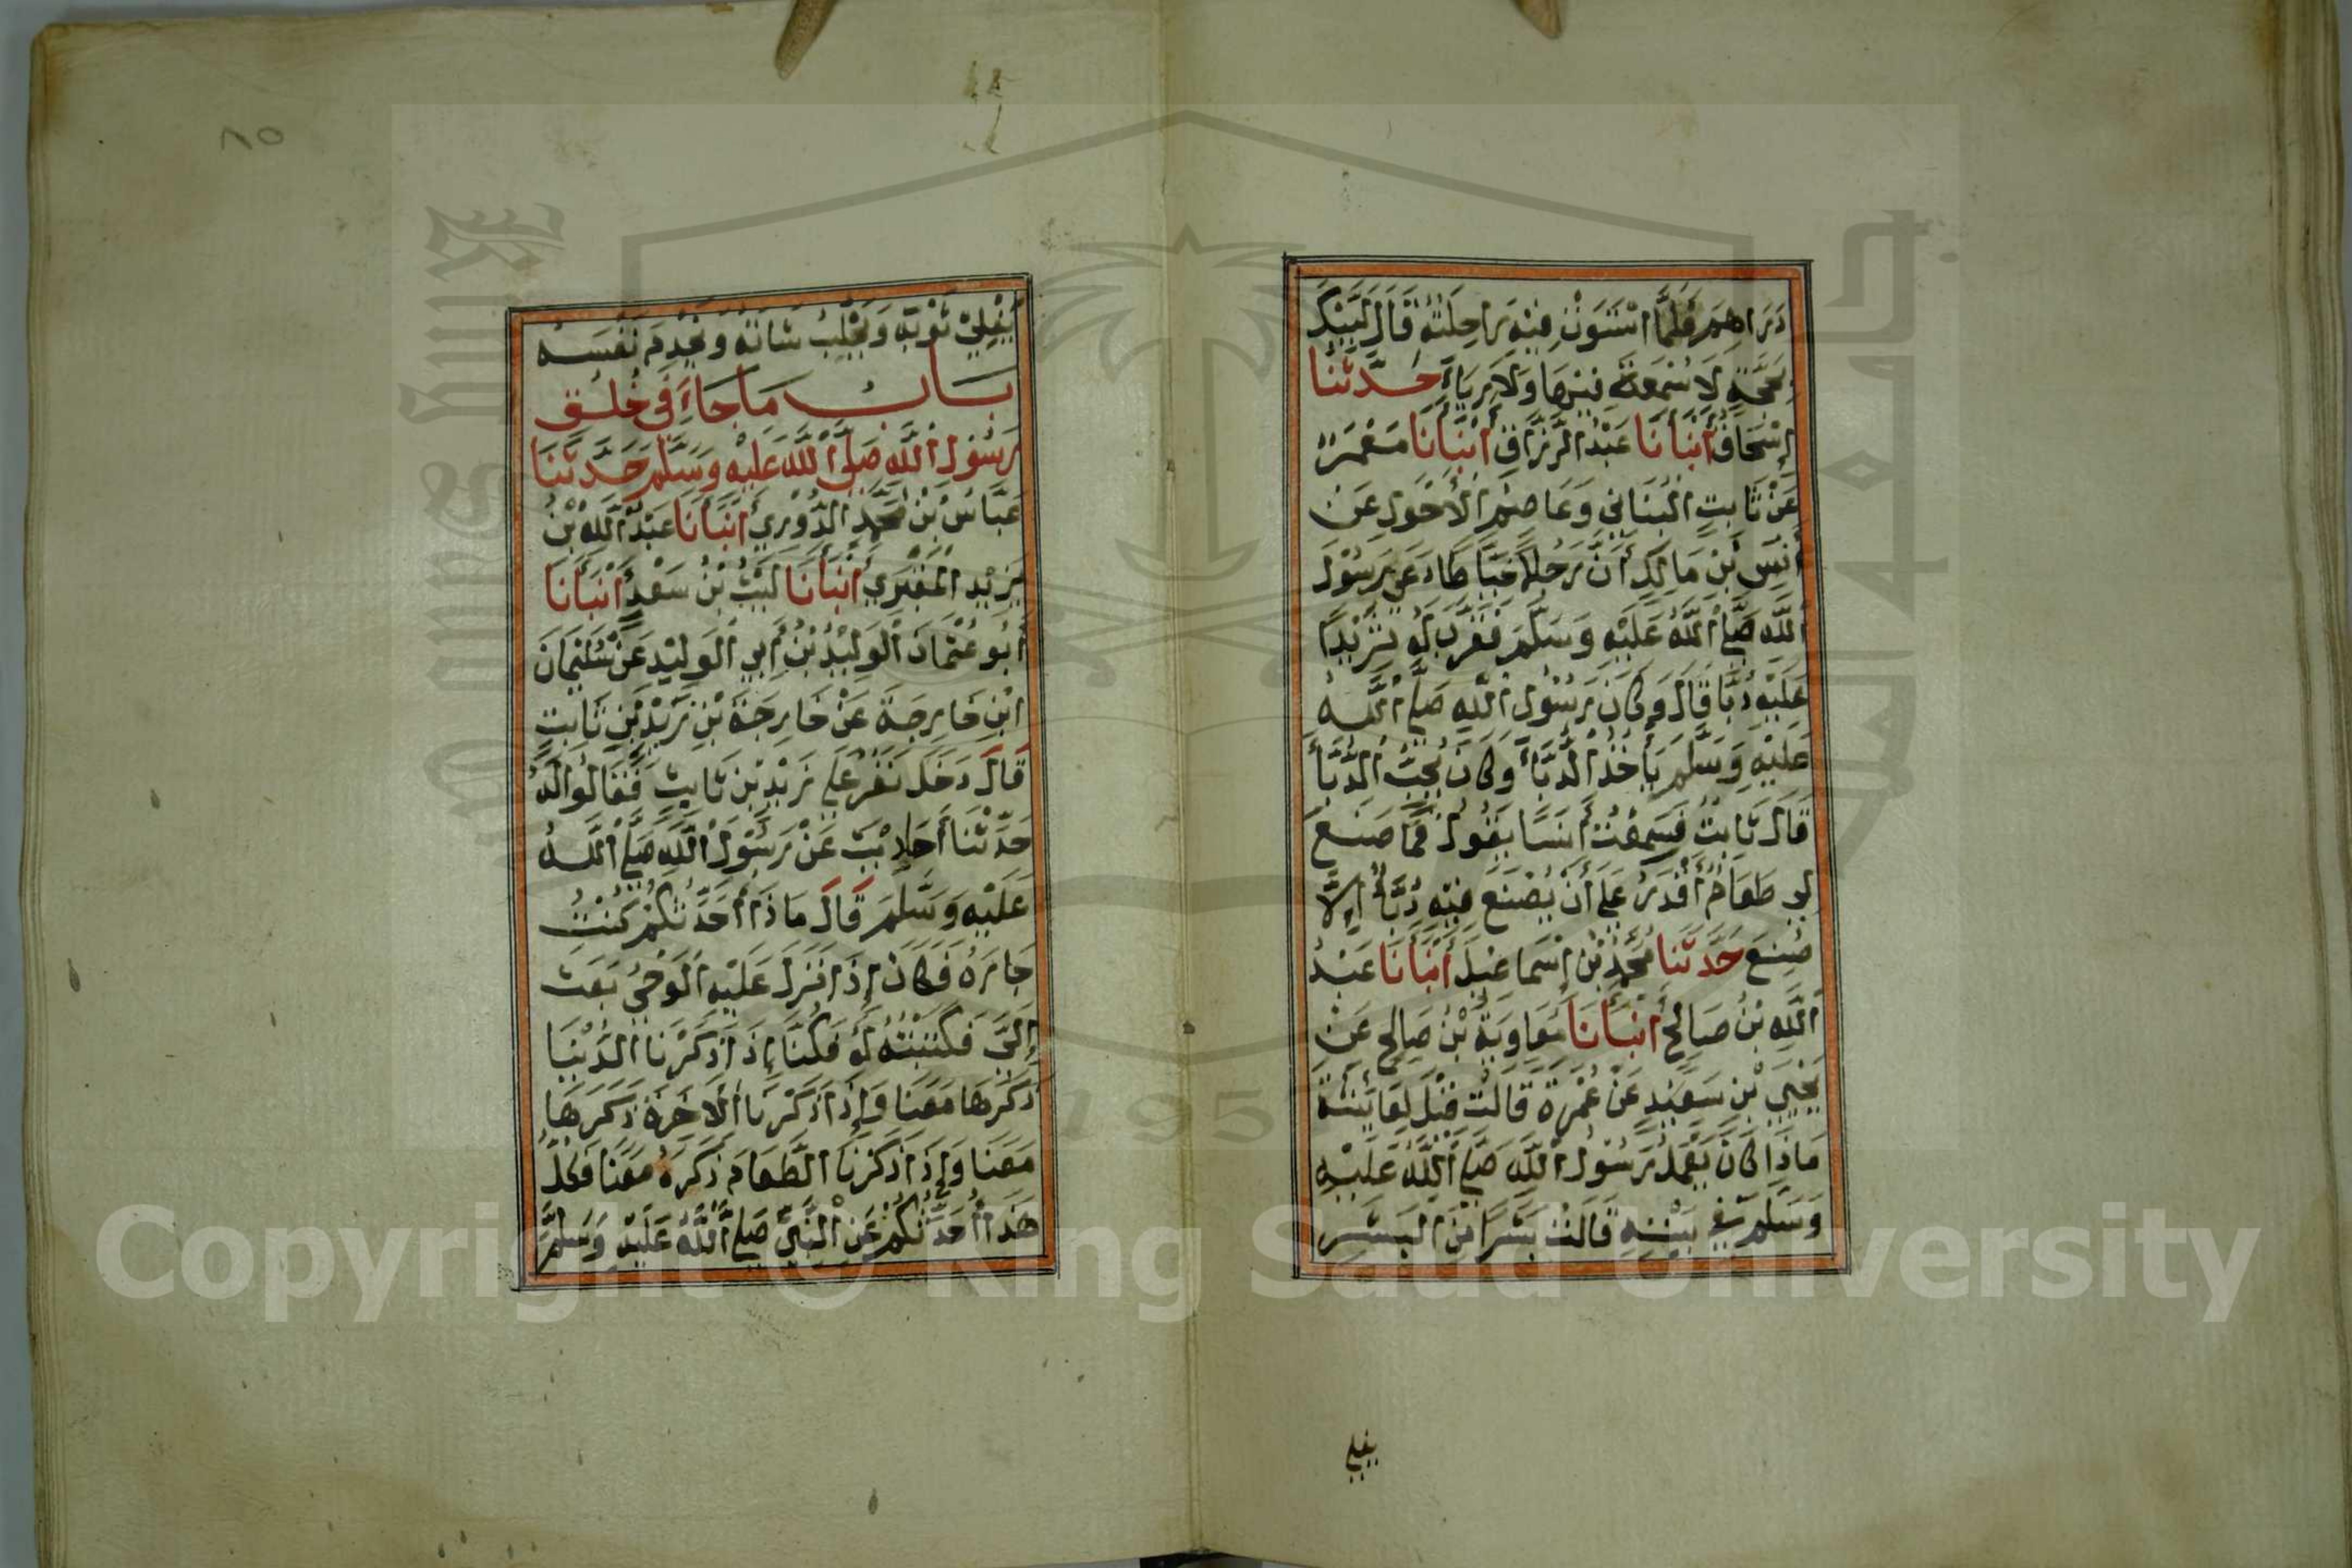 دَرَاهِمَ فَلَمَّا اسْتَوَتْ بِهِ رَاحِلَتُهُ قَالَ لَبَّيْكَ
بِحَجَّةٍ لَا سُمْعَةَ فِيْهَا وَلَا رِيَاءَ حَدَّثَنَا
إِسْحَاقُ أَنْبَأَنَا عَبْدُ الرَّزَّاقِ أَنْبَأَنَا مَعْمَرٌ
عَنْ ثَابِتٍ الْبُنَانِي وَعَاصِمِ الْأَحْوَلِ عَنْ
أَنَسِ بْنِ مَالِكٍ أَنَّ رَجُلًا خَيَّاطًا دَعَى رَسُوْلَ
اللَّهِ صَلَّى اللَّهُ عَلَيْهِ وَسَلَّمَ فَقَرَّبَ لَهُ ثَرِيْدًا
عَلَيْهِ دُبَّا قَالَ وَكَانَ رَسُوْلُ اللَّهِ صَلَّى اللَّهُ
عَلَيْهِ وَسَلَّمَ يَأْخُذُ الدُّبَّأَ وَكَانَ يُحِبُّ الدُّبَّأَ
قَالَ ثَابِتٌ فَسَمِعْتُ أَنَسًا يَقُوْلُ فَمَا صَنَعَ
لِي طَعَامٌ أَقْدَرُ عَلَى أَنْ يُصْنَعَ فِيْهِ دُبَّأٌ إِلَّا
صُنِعَ حَدَّثَنَا مُحَمَّدُ بْنُ إِسْمَاعِيْلَ أَنْبَأَنَا عَبْدُ
اللَّهِ بْنُ صَالِحٍ أَنْبَأَنَا مُعَاوِيَةُ بْنُ صَالِحٍ عَنْ
يَحْيَى بْنِ سَعِيْدٍ عَنْ عُمْرَةَ قَالَتْ قِيْلَ لِعَائِشَةَ
مَاذَا كَانَ يَعْمَلُ رَسُوْلُ اللَّهِ صَلَّى اللَّهُ عَلَيْهِ
وَسَلَّمَ فِي بَيْتِهِ قَالَتْ بَشَرًا مِنَ الْبَشَرِ
يفلي
٨٥
يُفْلِيْ ثَوْبَهُ وَيَحْلِبُ شَاتَهُ وَيَخْدِمُ نَفْسَهُ
بَابُ مَاجَاءَ فِي خُلُقِ
رَسُوْلِ اللَّهِ صَلَّى اللَّهُ عَلَيْهِ وَسَلَّمَ حَدَّثَنَا
عَبَّاسُ بْنُ مُحَمَّدٍ الدُّوْرِيُّ أَنْبَأَنَا عَبْدُ اللَّهِ بْنُ
يَزِيْدَ الْمُقْبَرِيُّ أَنْبَأَنَا لَيْثُ بْنُ سَعْدٍ أَنْبَأَنَا
أَبُو عُثْمَانَ الْوَلِيْدُ بْنُ أَبِي الْوَلِيْدِ عَنْ سُلَيْمَانَ
ابْنِ خَارِجَةَ عَنْ خَارِجَةَ بْنِ زَيْدِ بْنِ ثَابِتٍ
قَالَ دَخَلَ نَفَرٌ عَلَى زَيْدِ بْنِ ثَابِتٍ فَقَالُوا لَهُ
حَدِّثْنَا أَحَادِيْثَ عَنْ رَسُوْلِ اللَّهِ صَلَّى اللَّهُ
عَلَيْهِ وَسَلَّمَ قَالَ مَاذَا أُحَدِّثُكُمْ كُنْتُ
جَارَهُ فَكَانَ إِذَا نَزَلَ عَلَيْهِ الْوَحْيُ بَعَثَ
إِلَيَّ فَكَتَبْتُهُ لَهُ فَكُنَّا إِذَا ذَكَرْنَا الدُّنْيَا
ذَكَرَهَا مَعَنَا وَإِذَا ذَكَرْنَا الْآخِرَةَ ذَكَرَهَا
مَعَنَا وَإِذَا ذَكَرْنَا الطَّعَامَ ذَكَرَهُ مَعَنَا فَكُلُّ
هَذَا أُحَدِّثُكُمْ عَنِ النَّبِيِّ صَلَّى اللَّهُ عَلَيْهِ وَسَلَّمَ
جامعة الملك سعود
1957
Copyright © King Saud University